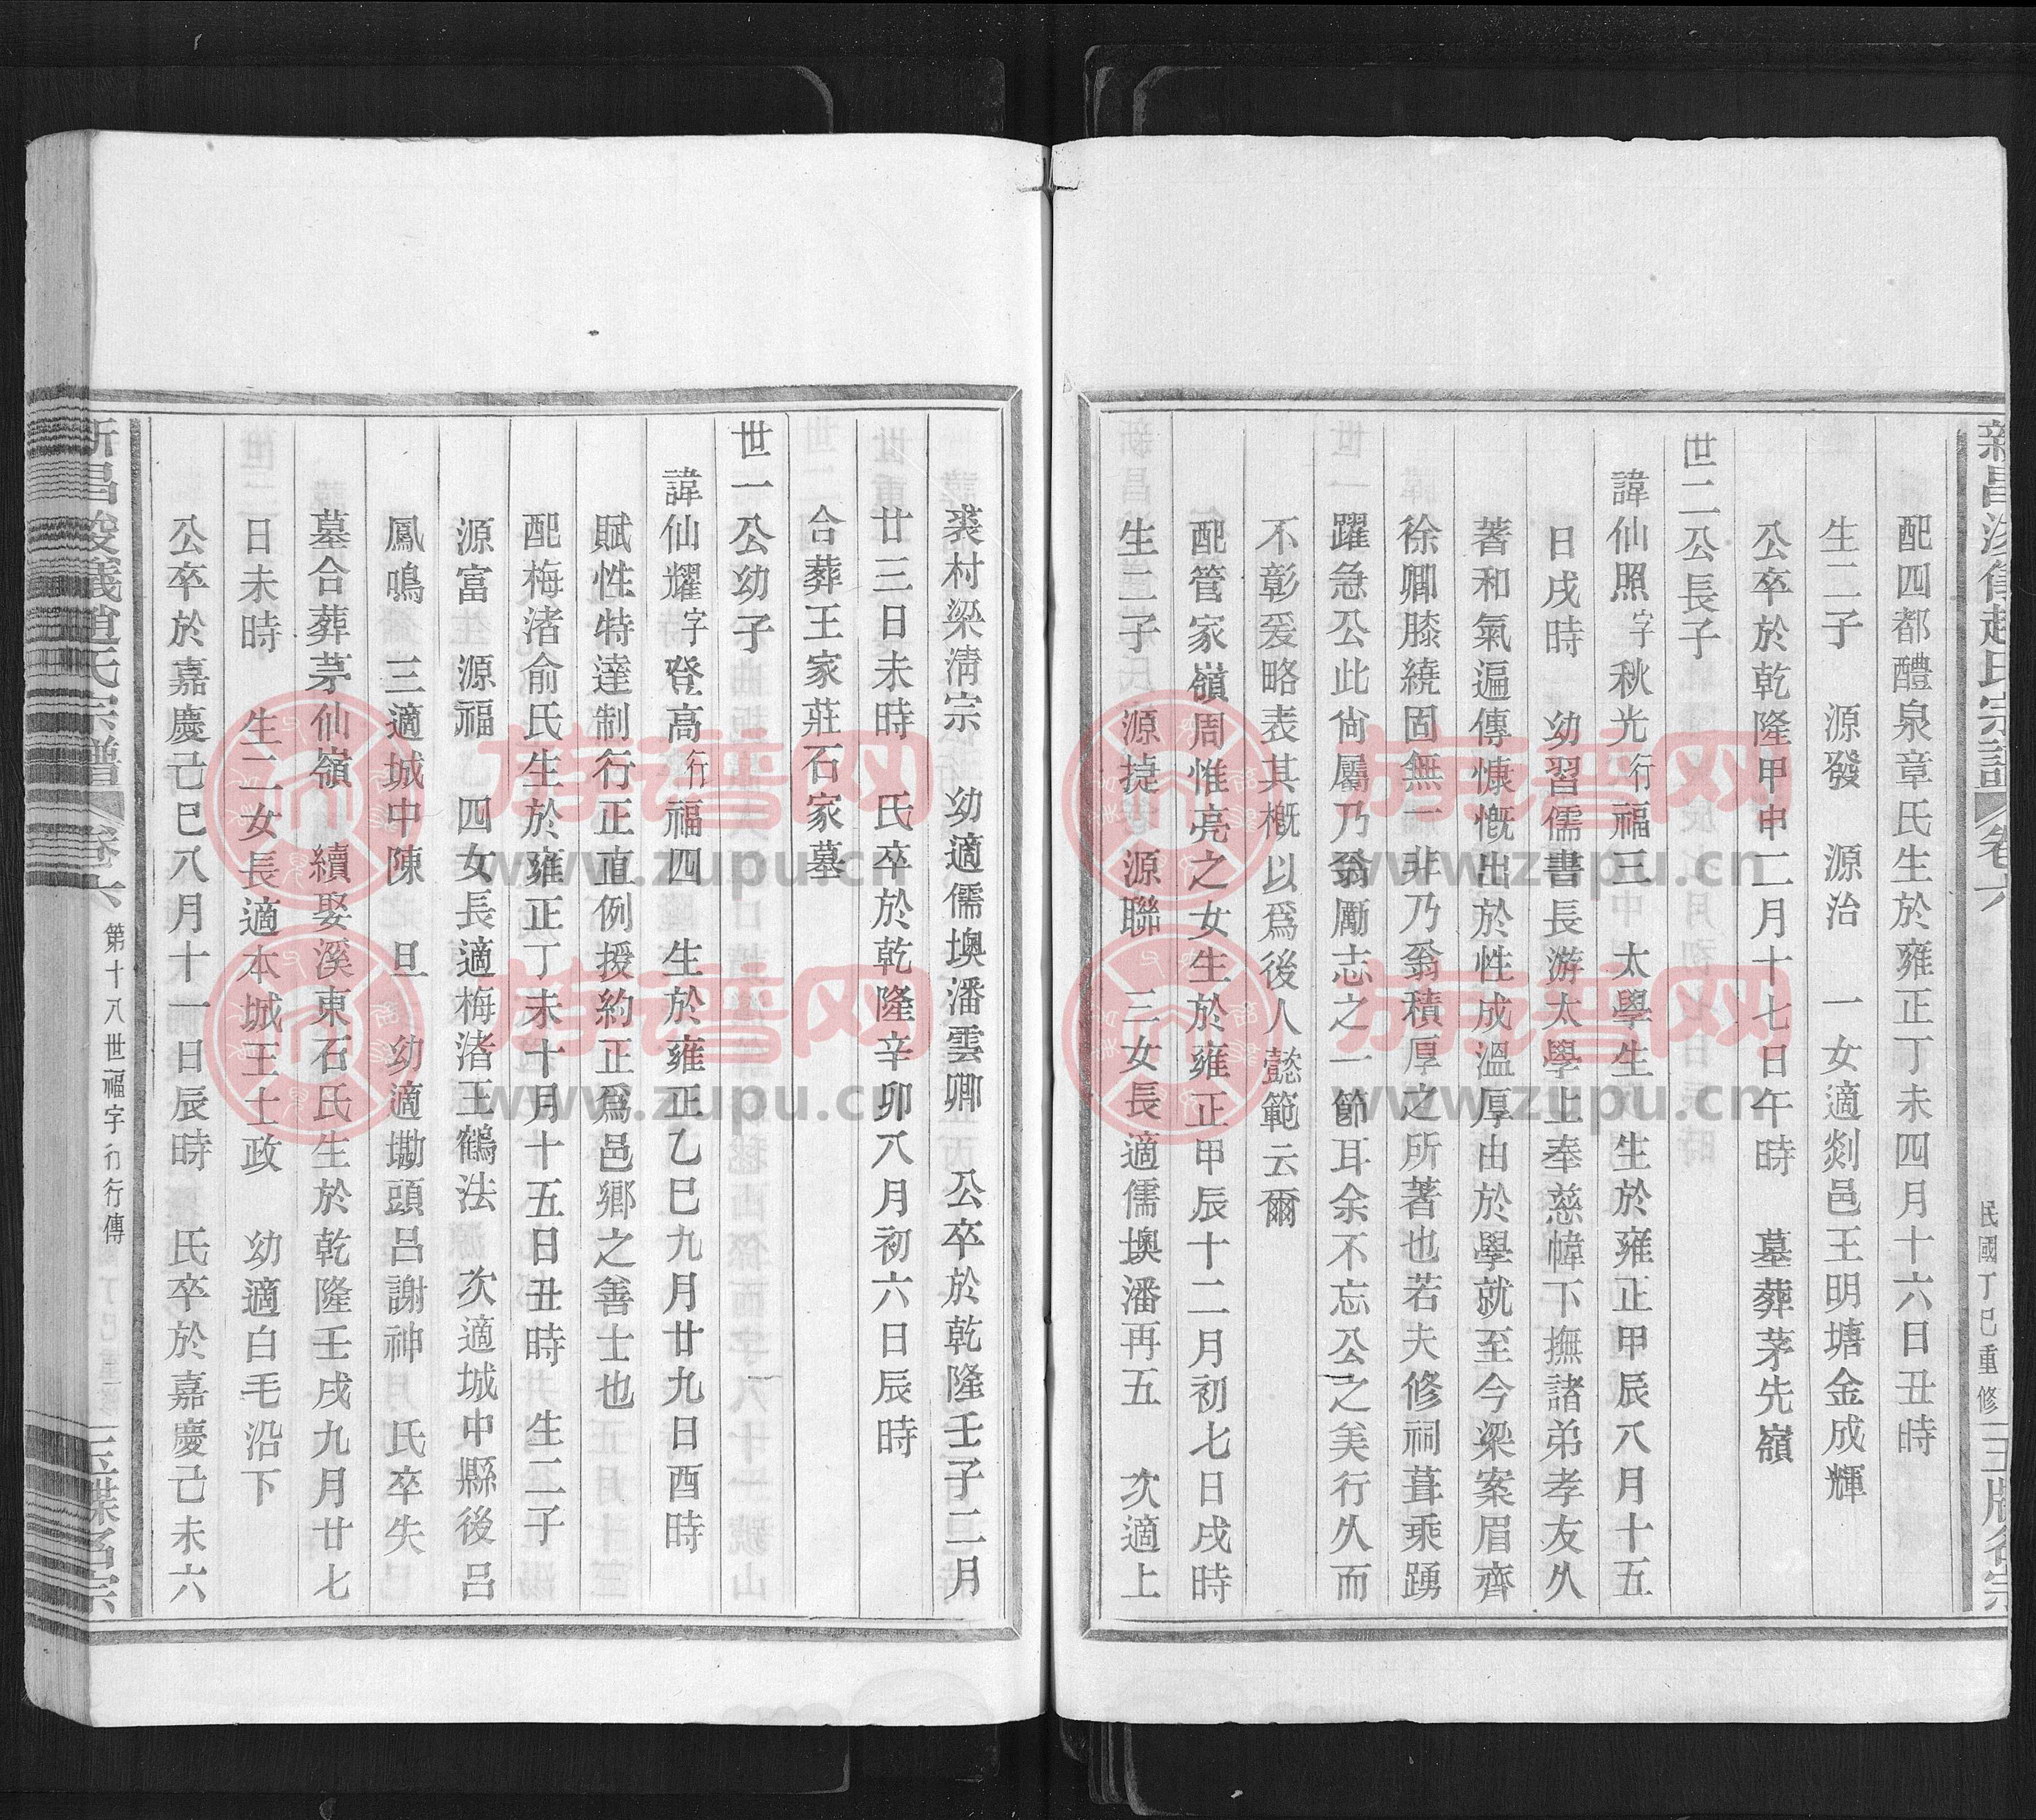 新昌浚儀趙氏宗譜 卷六 民國丁巳重修 玉牒名宗
配四都醴泉章氏生於雍正丁未四月十六日丑時
生二子 源發 源治 一女適剡邑王明塘金成輝
公卒於乾隆甲申二月十七日午時 墓葬茅先嶺
世二公長子
諱仙照字秋光行福三 太學生 生於雍正甲辰八月十五
日戌時 幼習儒書長游太學上奉慈幃下撫諸弟孝友久
著和氣遍傳慷慨出於性成溫厚由於學就至今梁案眉齊
徐卿膝繞固無一非乃翁積厚之所著也若夫修祠葺乘踴
躍急公此尙屬乃翁勵志之一節耳余不忘公之美行久而
不彰爰略表其槪以爲後人懿範云爾
配管家嶺周惟亮之女生於雍正甲辰十二月初七日戌時
生二子 源捷 源聯 三女長適儒墺潘再五 次適上
裘村梁淸宗 幼適儒墺潘雲卿 公卒於乾隆壬子二月
廿三日未時 氏卒於乾隆辛卯八月初六日辰時
合葬王家莊石家墓
世一公幼子
諱仙耀字登高行福四 生於雍正乙巳九月廿九日酉時
賦性特達制行正直例授約正爲邑鄉之善士也
配梅渚俞氏生於雍正丁未十月十五日丑時 生二子
源富 源福 四女長適梅渚王鶴法 次適城中縣後呂
鳳鳴 三適城中陳 旦 幼適墈頭呂謝神 氏卒失
墓合葬茅仙嶺 續娶溪東石氏生於乾隆壬戌九月廿七
日未時 生二女長適本城王士政 幼適白毛沿下
公卒於嘉慶己巳八月十一日辰時 氏卒於嘉慶己未六
新昌浚儀趙氏宗譜 卷六 第十八世福字行行傳 玉牒名宗
族谱网
www.zupu.cn
族谱网
www.zupu.cn
族谱网
www.zupu.cn
族谱网
www.zupu.cn